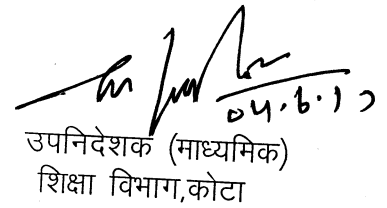 04.6.13
उपनिदेशक (माध्यमिक)
शिक्षा विभाग,कोटा